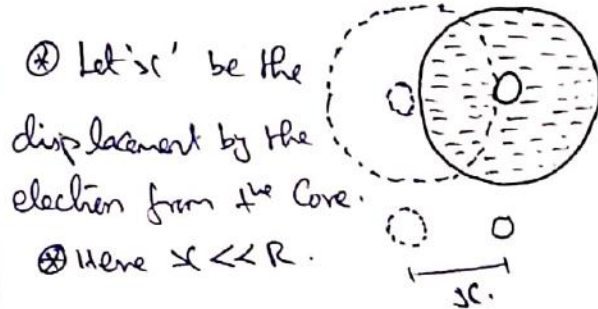 ⊛ Let 'x' be the
displacement by the
electron from the Core.
⊛ Here x << R.
x.